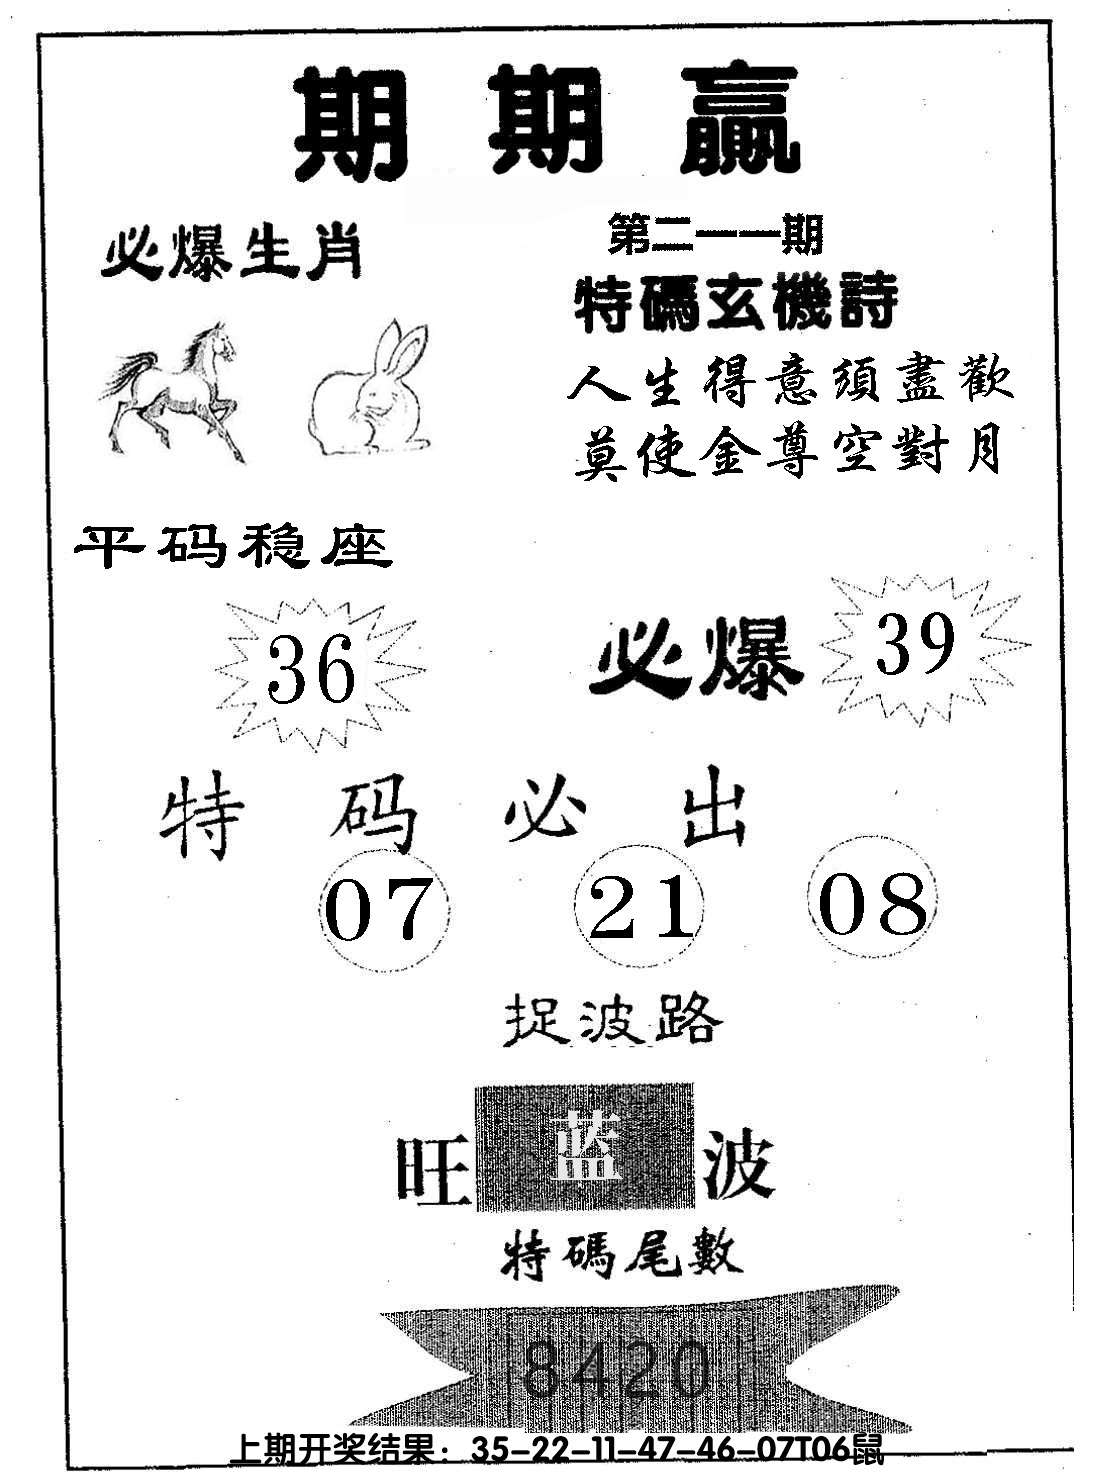 期期赢
必爆生肖
第二一一期
特碼玄機詩
人生得意須盡歡
莫使金尊空對月
平码稳座
36
必爆 39
特码必出
07 21 08
捉波路
旺 蓝 波
特碼尾數
8420
上期开奖结果：35-22-11-47-46-07T06鼠